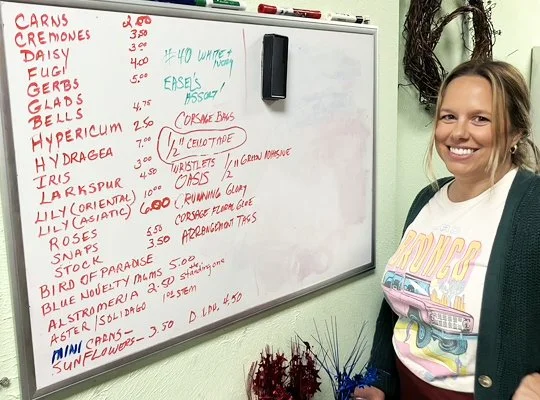 CARNS 2.00
CREMONES 3.50
DAISY 3.00
FUGI 4.00
GERBS 5.00
GLADS
BELLS 4.75
HYPERICUM 2.50
HYDRAGEA 7.00
IRIS 3.00
LARKSPUR 4.50
LILY (ORIENTAL) 10.00
LILY (ASIATIC) 6.00
ROSES 5.50
SNAPS 3.50
STOCK
BIRD OF PARADISE
BLUE NOVELTY MUMS 5.00
ALSTROMERIA 2.50 standing one
ASTER/SOLIDAGO 1 or STEM
MINI CARNS—
SUNFLOWERS— 3.50 D. 4.50
#40 WHITE +
IVORY
EASEL'S
ASSORT'
CORSAGE BAGS
1/2" CELLOTAPE
WRISTLETS
OASIS 1/2" GREEN ADHESIVE
CORSAGE FLORAL GLUE
ARRANGEMENT TAGS
BRONCO